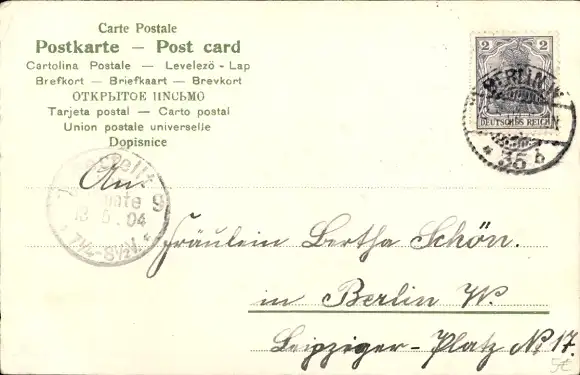 Carte Postale
Postkarte — Post card
Cartolina Postale — Levelező - Lap
Brefkort — Briefkaart — Brevkort
ОТКРЫТОЕ ПИСЬМО
Tarjeta postal — Carto postal
Union postale universelle
Dopisnice
2 2
DEUTSCHES REICH
BERLIN.W.
* 35 b
Bestellt
9
13.5.04
7¼-8½V.
An
Fräulein Bertha Schön.
in Berlin W.
Leipziger-Platz No 17.